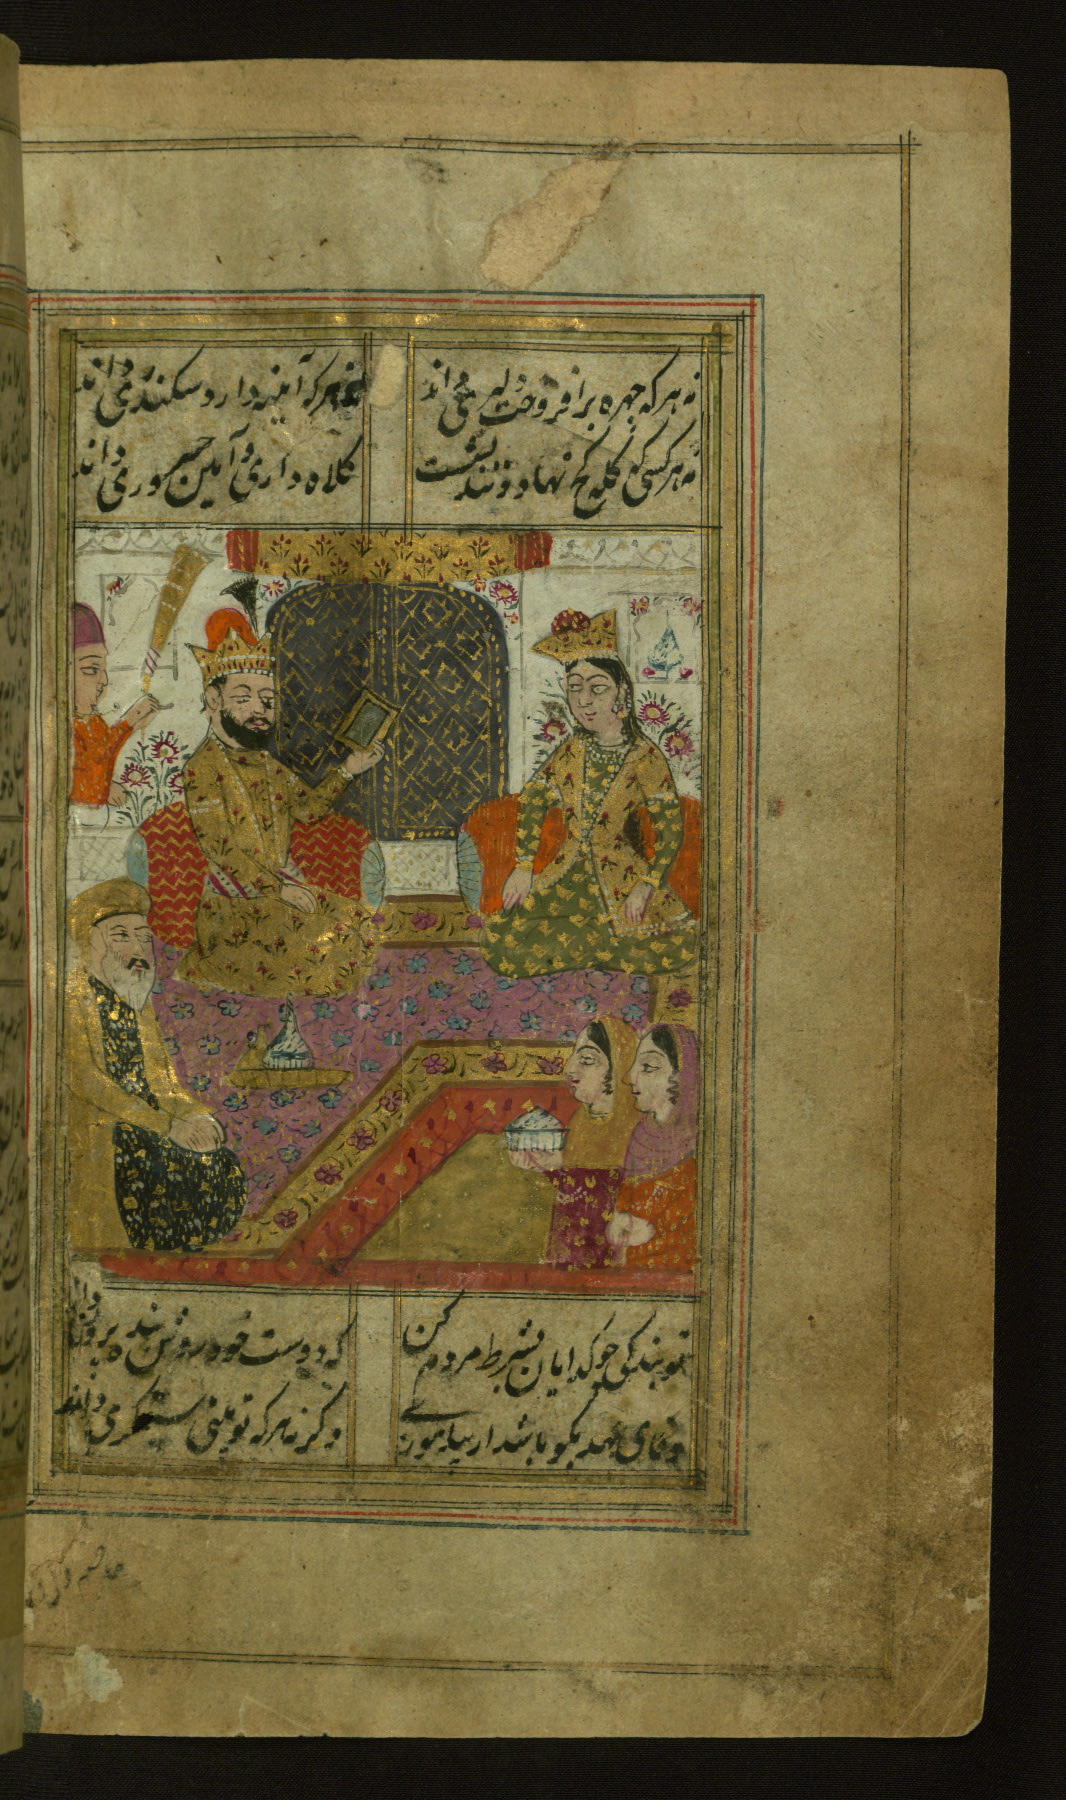 نه هر که چهره برافروخت دلبری داند
نه هر که آینه دارد سکندری داند
نه هر کسی که کله کج نهاد و تند نشست
کلاه داری و آیین سروری داند
تو بندگی چو گدایان بشرط مزد مکن
که دوست خود روش بنده پروری داند
وفای عهد نکو باشد ار بیاموزی
وگرنه هر که تو بینی ستمگری داند